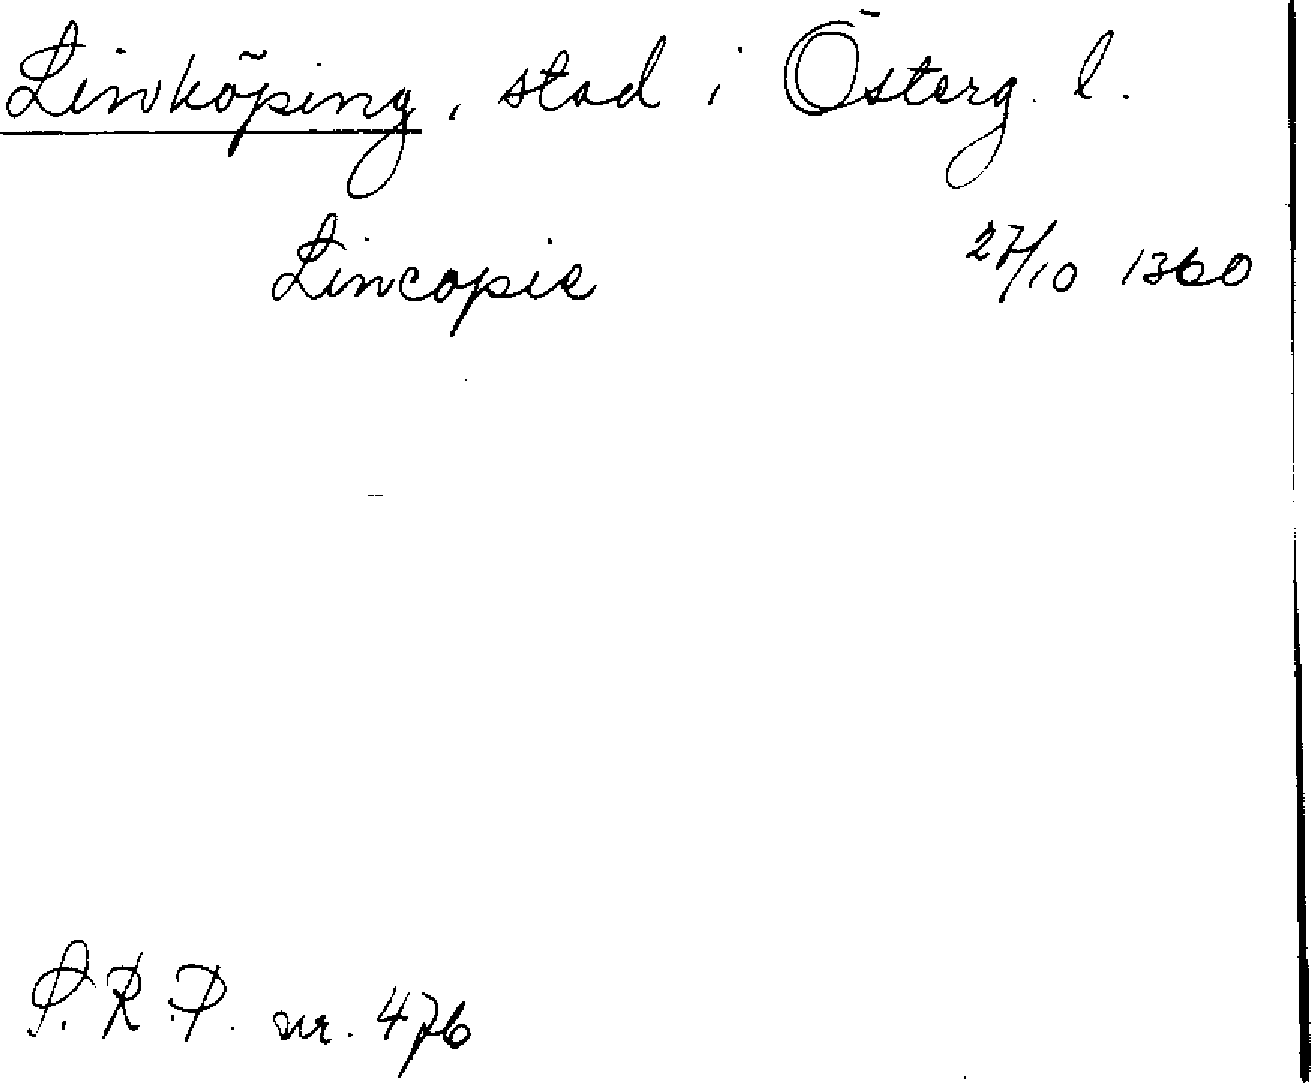 Linköping, stad i Österg. l.
Lincopie 27/10 1360
S.R.P. nr. 476